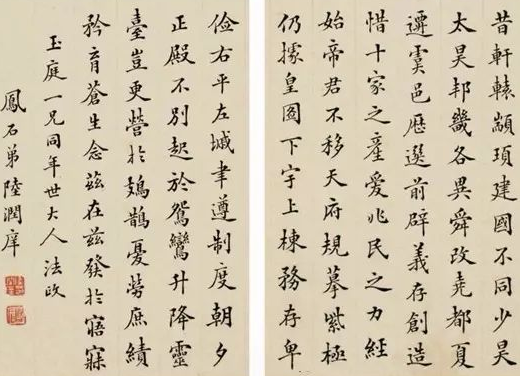 昔軒轅顓頊建國不同少昊
太昊邦畿各異舜改堯都夏
遷虞邑歷選前辟義存創造
惜十家之產愛兆民之力經
始帝君不移天府規摹紫極
仍據皇圖下宇上棟務存卑
儉右平左墄聿遵制度朝夕
正殿不別起於鴛鸞升降靈
臺豈更營於鳷鵲憂勞庶績
矜育蒼生念茲在茲發於寤寐
玉庭一兄同年世大人法政
鳳石弟陸潤庠